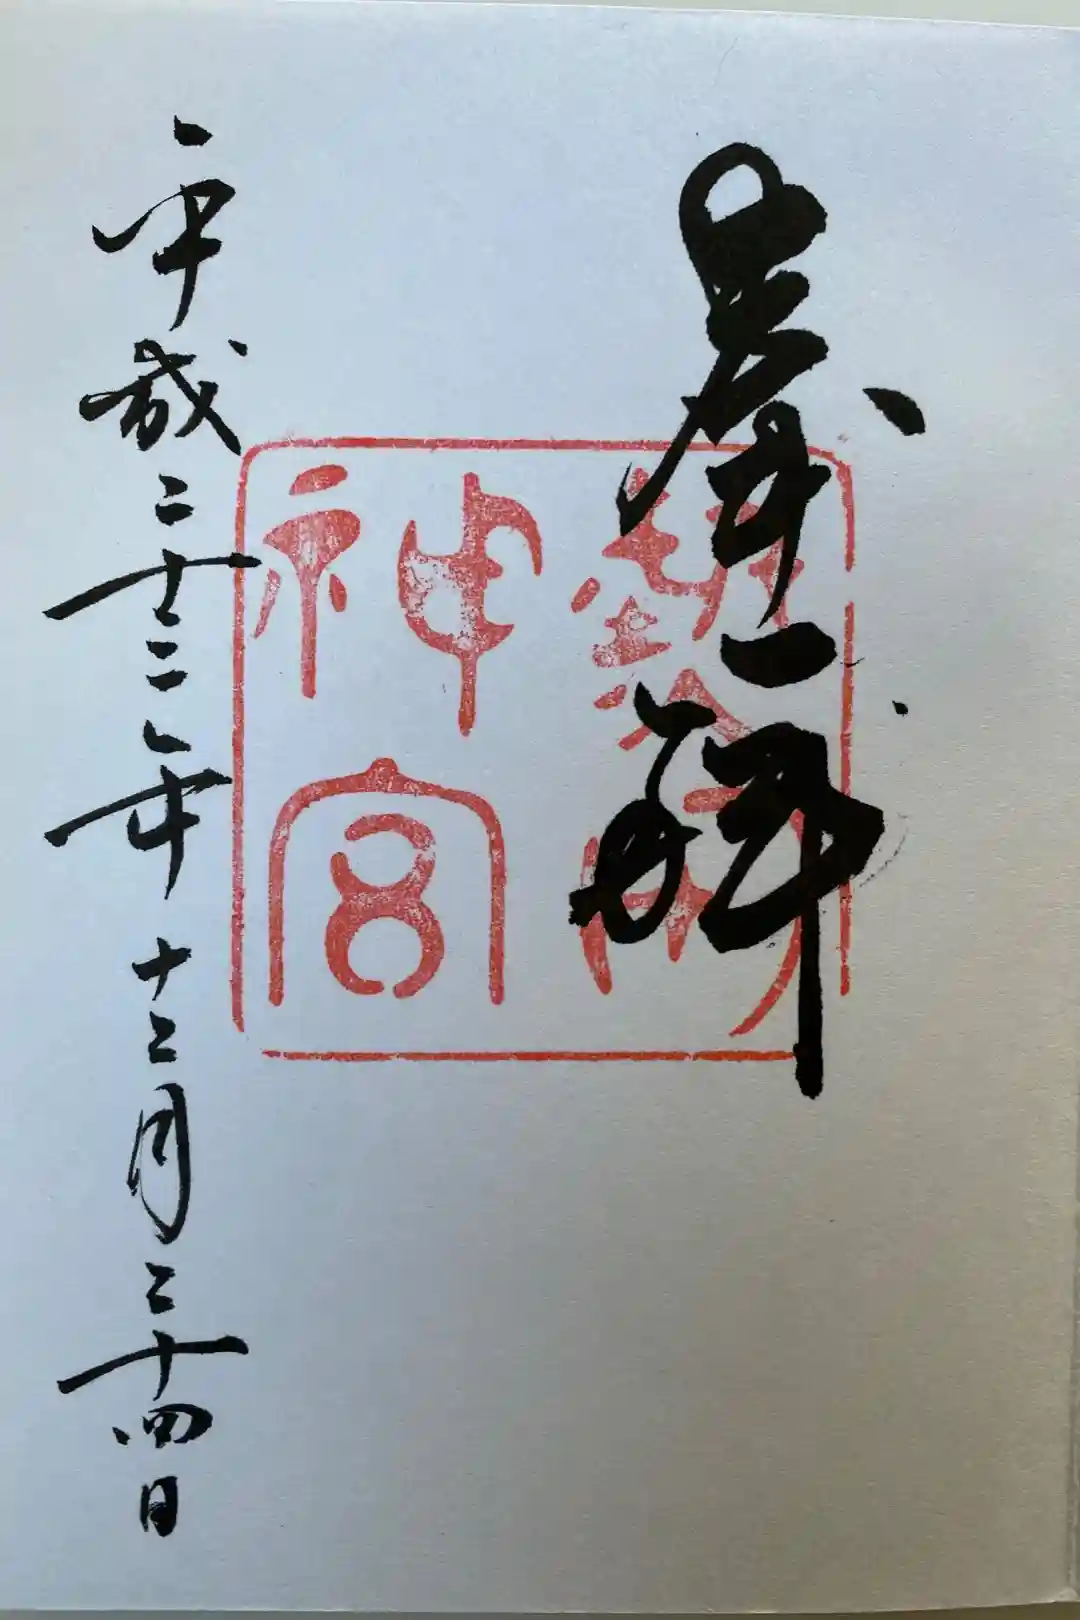 奉拝
神宮
平成二十二年十二月二十四日